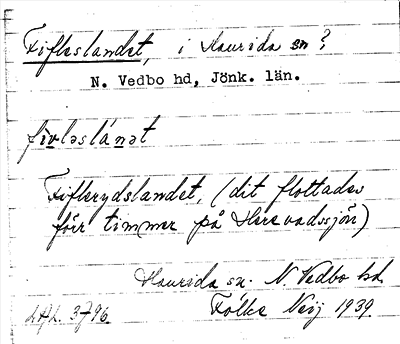 Fifleslandet, i Haurida sn?
N. Vedbo hd, Jönk. län.
fivləslánət
Fiflerydslandet, (dit flottades
förr timmer på Horsvadssjön)
Haurida sn. N. Vedbo hd.
3796. Folke Neij 1939.